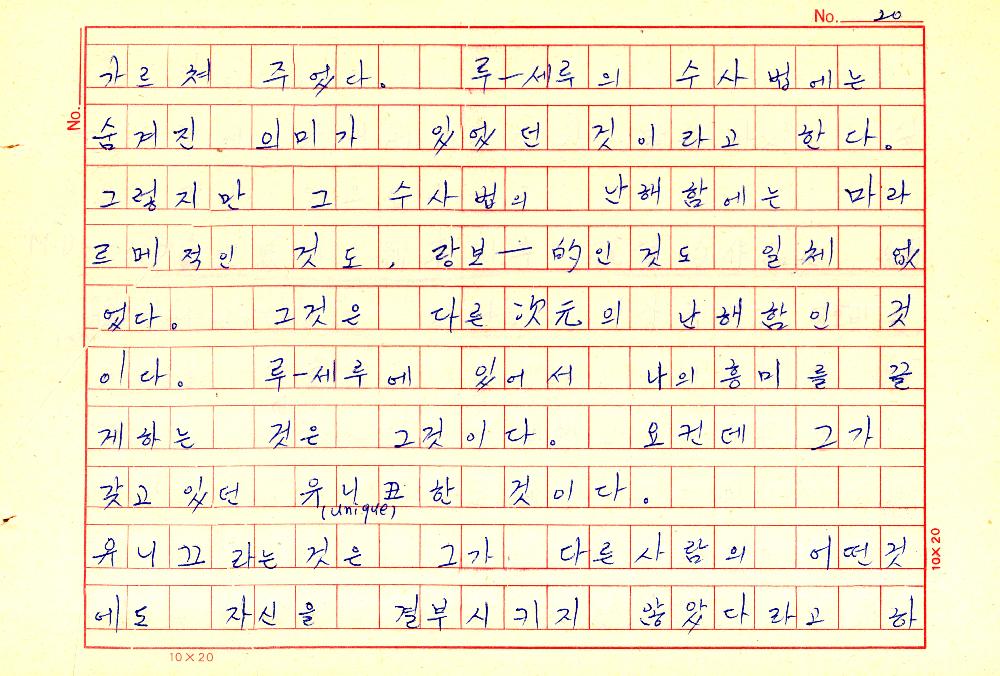 No. 20
No.
가르쳐 주었다. 루—세루의 수사법에는
숨겨진 의미가 있었던 것이라고 한다.
그렇지만 그 수사법의 난해함에는 마라
르메적인 것도, 랑보—的인 것도 일체 없
었다. 그것은 다른 次元의 난해함인 것
이다. 루—세루에 있어서 나의 흥미를 끌
게하는 것은 그것이다. 요컨데 그가
갖고 있던 유니크한 것이다.
(unique)
유니끄라는 것은 그가 다른사람의 어떤것
에도 자신을 결부시키지 않았다라고 하
10×20
10×20